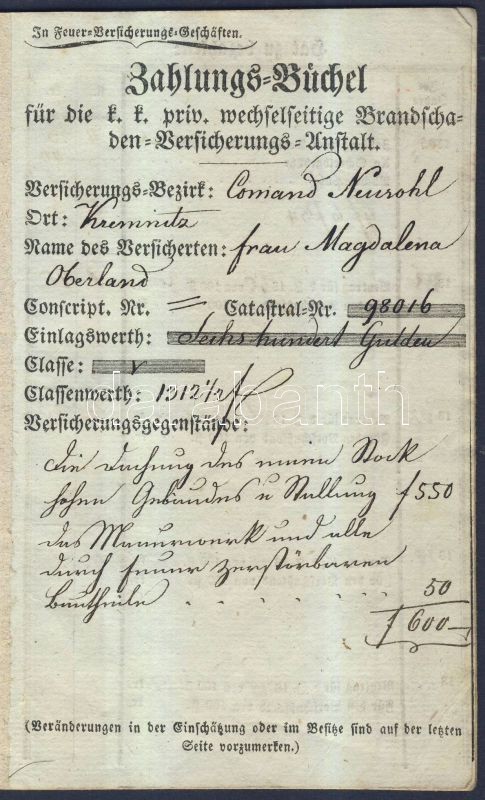 In Feuer=Versicherungs=Geschäften.
Zahlungs=Büchel
für die k. k. priv. wechselseitige Brandscha-
den=Versicherungs=Anstalt.
Versicherungs=Bezirk: Comand Neusohl
Ort: Kremnitz
Name des Versicherten: frau Magdalena
Oberland
Conscript. Nr. = Catastral=Nr. 98016
Einlagswerth: Sechshundert Gulden
Classe: V
Classenwerth: 1312 1/2 f
Versicherungsgegenstände:
darabanth
die Dachung des einen Stock
hohen Gebäudes u Stallung f 550
das Mauerwerk und alle
durch feuer zerstörbaren
Bautheile . . . . . . . 50
f 600
(Veränderungen in der Einschätzung oder im Besitze sind auf der letzten
Seite vorzumerken.)